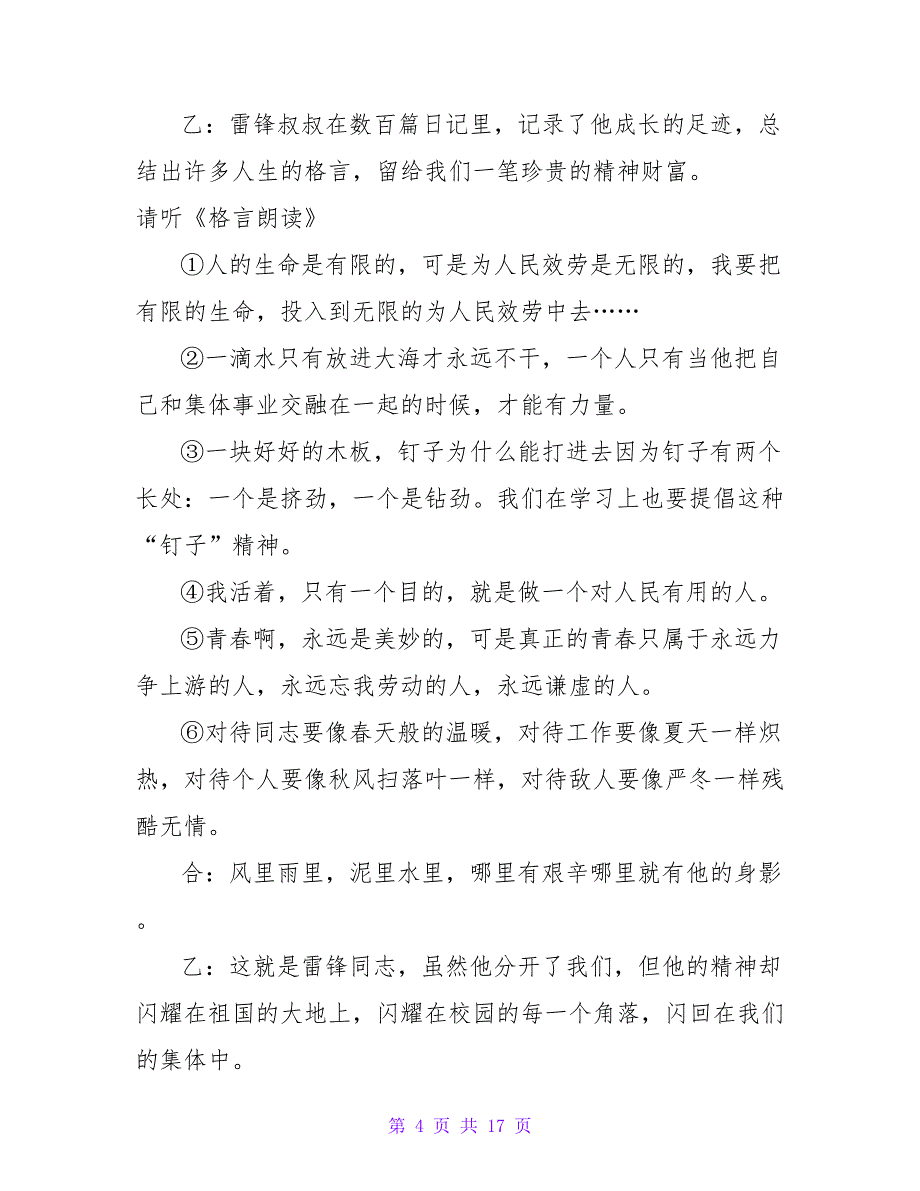 乙：雷锋叔叔在数百篇日记里，记录了他成长的足迹，总
结出许多人生的格言，留给我们一笔珍贵的精神财富。
请听《格言朗读》
①人的生命是有限的，可是为人民效劳是无限的，我要把
有限的生命，投入到无限的为人民效劳中去……
②一滴水只有放进大海才永远不干，一个人只有当他把自
己和集体事业交融在一起的时候，才能有力量。
③一块好好的木板，钉子为什么能打进去因为钉子有两个
长处：一个是挤劲，一个是钻劲。我们在学习上也要提倡这种
“钉子”精神。
④我活着，只有一个目的，就是做一个对人民有用的人。
⑤青春啊，永远是美妙的，可是真正的青春只属于永远力
争上游的人，永远忘我劳动的人，永远谦虚的人。
⑥对待同志要像春天般的温暖，对待工作要像夏天一样炽
热，对待个人要像秋风扫落叶一样，对待敌人要像严冬一样残
酷无情。
合：风里雨里，泥里水里，哪里有艰辛哪里就有他的身影
。
乙：这就是雷锋同志，虽然他分开了我们，但他的精神却
闪耀在祖国的大地上，闪耀在校园的每一个角落，闪回在我们
的集体中。
第 4 页 共 17 页